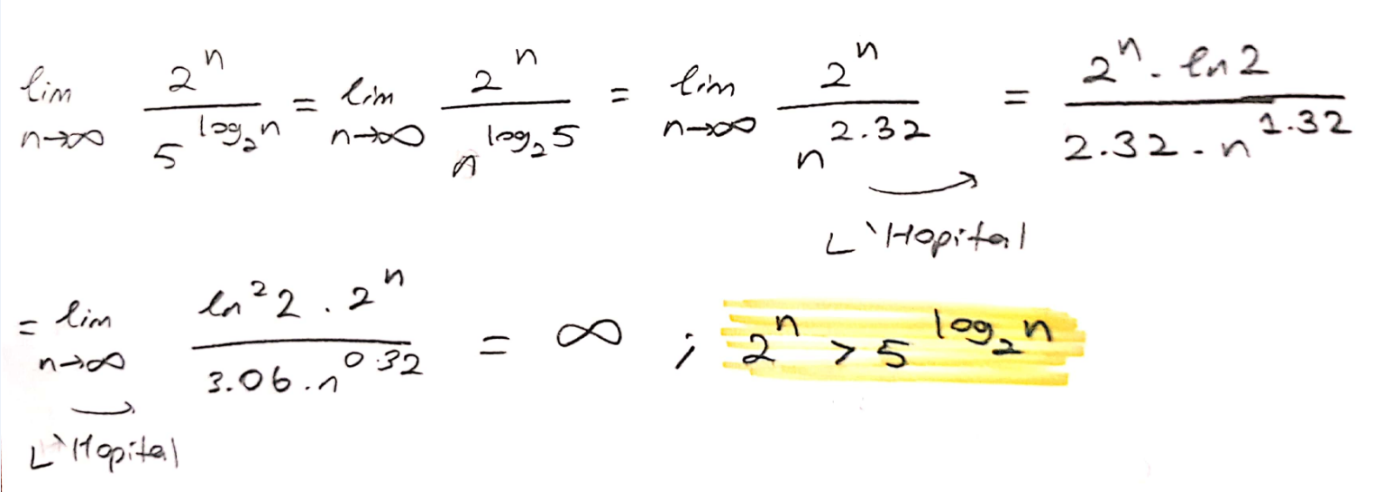 lim n→∞ 2^n / 5^(log₂n) = lim n→∞ 2^n / n^(log₂5) = lim n→∞ 2^n / n^2.32 = 2^n . ln2 / 2.32 . n^1.32
L`Hopital
= lim n→∞ ln²2 . 2^n / 3.06 . n^0.32 = ∞ ; 2^n > 5^(log₂n)
L`Hopital